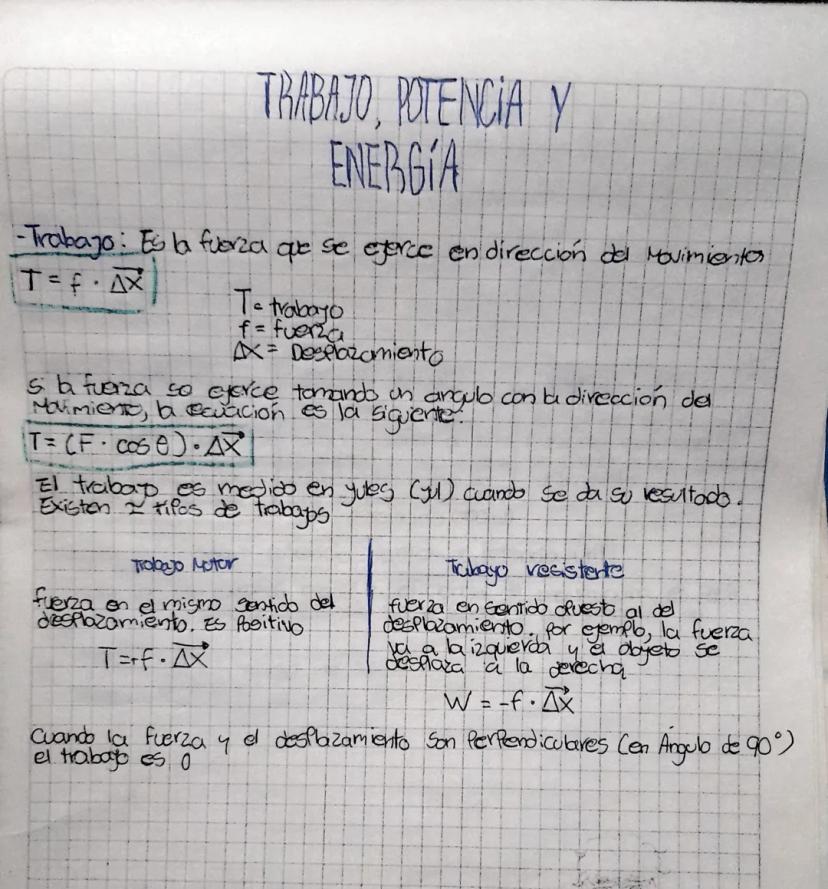 TRABAJO, POTENCIA Y
ENERGÍA
-Trabajo: Es la fuerza que se ejerce en dirección del Movimiento
T = f · Δx⃗
T= trabajo
f = fuerza
Δx = Desplazamiento
Si la fuerza se ejerce tomando un angulo con la dirección del
Movimiento, la ecuación es la siguiente:
T = (F · cos θ) · Δx⃗
El trabajo es medido en yules (yul) cuando se da su resultado.
Existen 2 tipos de trabajos
Trabajo Motor
fuerza en el mismo sentido del
desplazamiento. Es Positivo
T=+f · Δx⃗
Trabajo resistente
fuerza en sentido opuesto al del
desplazamiento. por ejemplo, la fuerza
va a la izquierda y el objeto se
desplaza a la derecha
W = -f · Δx⃗
Cuando la fuerza y el desplazamiento son Perpendiculares (en Ángulo de 90°)
el trabajo es 0